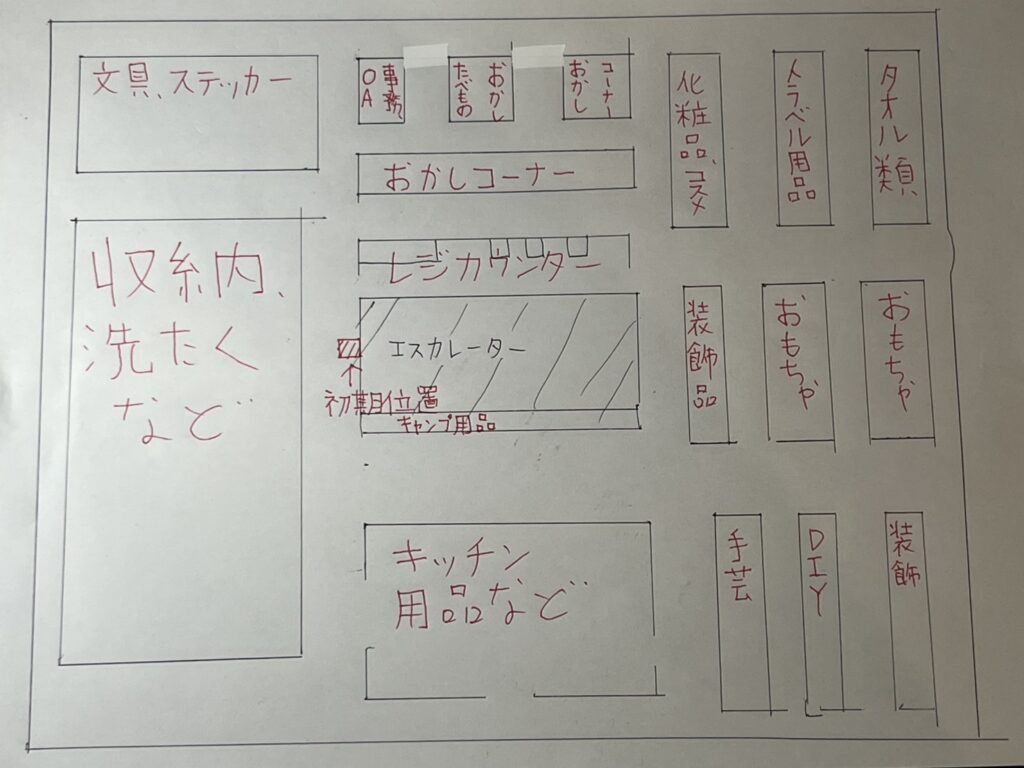 文具、ステッカー
事務、
OA
おかし
たべもの
コーナー
おかし
化粧品、コスメ
トラベル用品
タオル類、
おかしコーナー
レジカウンター
収納内、
洗たく
など
エスカレーター
初期位置
キャンプ用品
装飾品
おもちゃ
おもちゃ
キッチン
用品など
手芸
DIY
装飾